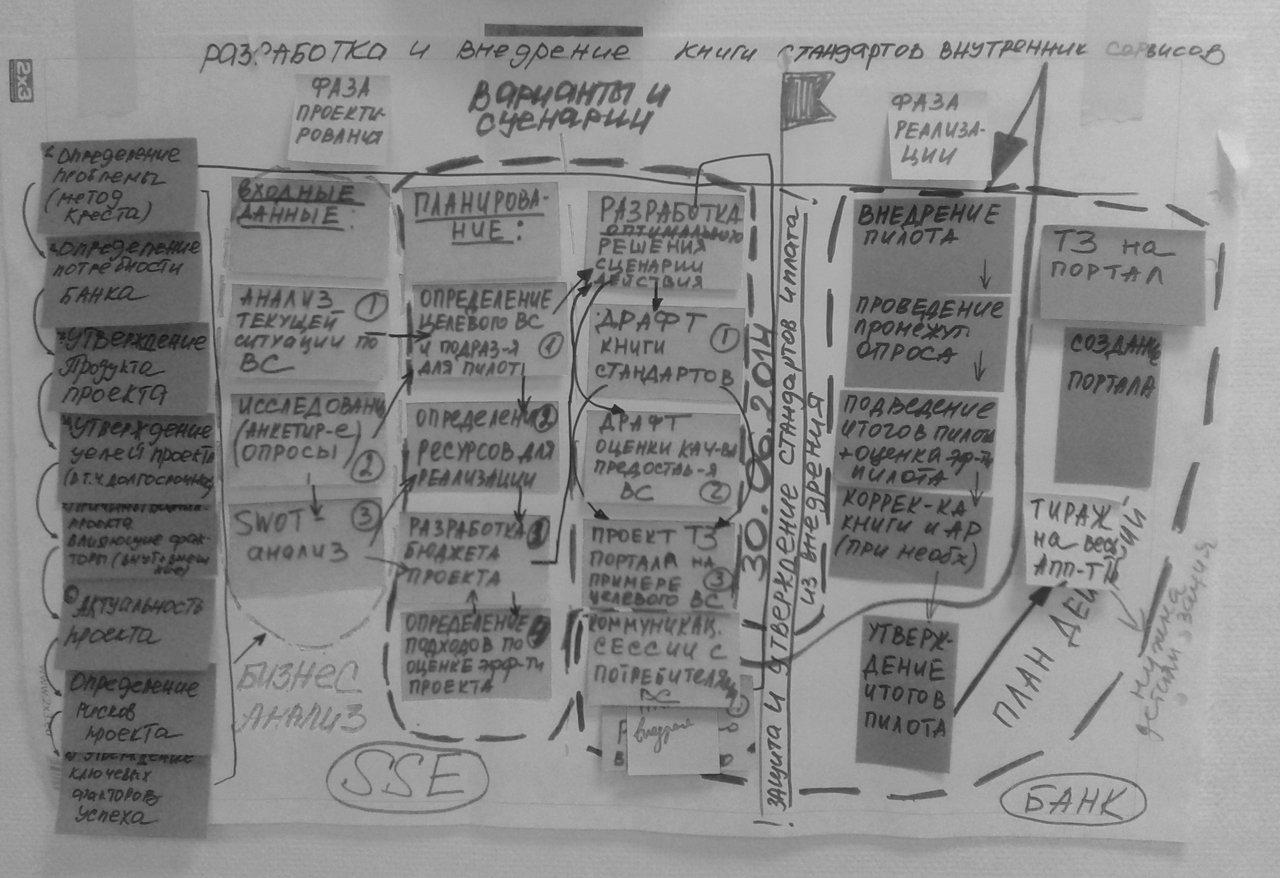 РАЗРАБОТКА И ВНЕДРЕНИЕ КНИГИ СТАНДАРТОВ ВНУТРЕННИХ СЕРВИСОВ
2x3
ФАЗА
ПРОЕКТИ-
РОВАНИЯ
ВАРИАНТЫ И
СЦЕНАРИИ
ФАЗА
РЕАЛИЗА-
ЦИИ
Определение
проблемы
(метод
креста)
Определение
потребности
БАНКА
Утверждение
Продукта
проекта
Утверждение
целей проекта
(в т.ч. долгосрочных)
проекта
влияющие фак-
торы
Актуальность
проекта
Определение
рисков
проекта
ключевых
факторов
успеха
ВХОДНЫЕ
ДАННЫЕ:
АНАЛИЗ 1
ТЕКУЩЕЙ
СИТУАЦИИ ПО
ВС
ИССЛЕДОВАНИ
(АНКЕТИР-Е
ОПРОСЫ) 2
SWOT- 3
АНАЛИЗ
БИЗНЕС
АНАЛИЗ
SSE
ПЛАНИРОВА-
НИЕ:
ОПРЕДЕЛЕНИЕ
ЦЕЛЕВОГО ВС
И ПОДРАЗ-Я 1
ДЛЯ ПИЛОТ
ОПРЕДЕЛЕНИ 2
РЕСУРСОВ ДЛЯ
РЕАЛИЗАЦИИ
РАЗРАБОТКА 3
БЮДЖЕТА
ПРОЕКТА
ОПРЕДЕЛЕНИЕ 4
ПОДХОДОВ ПО
ОЦЕНКЕ ЭФФ-ТИ
ПРОЕКТА
РАЗРАБОТКА
ОПТИМАЛЬНОГО
РЕШЕНИЯ
СЦЕНАРИИ
ДЕЙСТВИЯ
ДРАФТ 1
КНИГИ
СТАНДАРТОВ
ДРАФТ
ОЦЕНКИ КАЧ-ВА
ПРЕДОСТАВ-Я
ВС 2
ПРОЕКТ ТЗ
ПОРТАЛА НА
ПРИМЕРЕ 3
ЦЕЛЕВОГО ВС
КОММУНИКАЦ.
СЕССИИ С
ПОТРЕБИТЕЛЯМИ
ВС
внедрение
30.06.2014
ЗАЩИТА И УТВЕРЖДЕНИЕ СТАНДАРТОВ И ПЛАТА!
ИЗ ВНЕДРЕНИЯ
ВНЕДРЕНИЕ
ПИЛОТА
ПРОВЕДЕНИЕ
ПРОМЕЖУТ.
ОПРОСА
ПОДВЕДЕНИЕ
ИТОГОВ ПИЛОТА
+ ОЦЕНКА ЭФ-ТИ
ПИЛОТА
КОРРЕК-КА
КНИГИ И АР
(ПРИ НЕОБХ)
УТВЕРЖ-
ДЕНИЕ
ИТОГОВ
ПИЛОТА
ТЗ НА
ПОРТАЛ
СОЗДАНИЕ
ПОРТАЛА
ТИРАЖ
НА ВЕСЬ
АПП-Т
ПЛАН ДЕЙСТВИЙ
НУЖНА
ДЕТАЛИЗАЦИЯ
БАНК